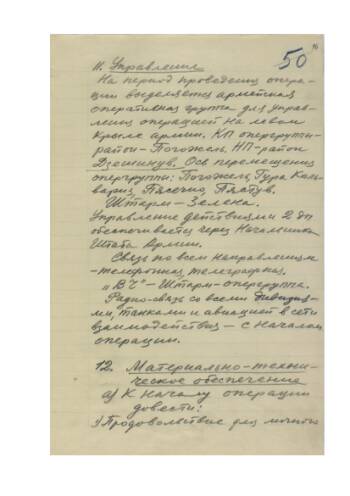 50
11. Управление
На период проведения опера-
ции выделяется армейская
оперативная группа для управ-
ления операцией на левом
крыле армии. КП опергруппы-
район - Погожель, НП - район
Дзешинув. Ось перемещения
опергруппы: Погожель, Гура Каль-
вария, Пясечно, Пястув.
Штарм - Зелена.
Управление действиями 2 дп
обеспечивается через Начальника
Штаба Армии.
Связь по всем направлениям
- телефонная, телеграфная.
„ВЧ" - Штарм - опергруппа.
Радио-связь со всеми дивизия-
ми, танками и авиацией в сети
взаимодействия - с началом
операции.
12. Материально-техни-
ческое обеспечение
а) К началу операции
довести:
1) Продовольствие для